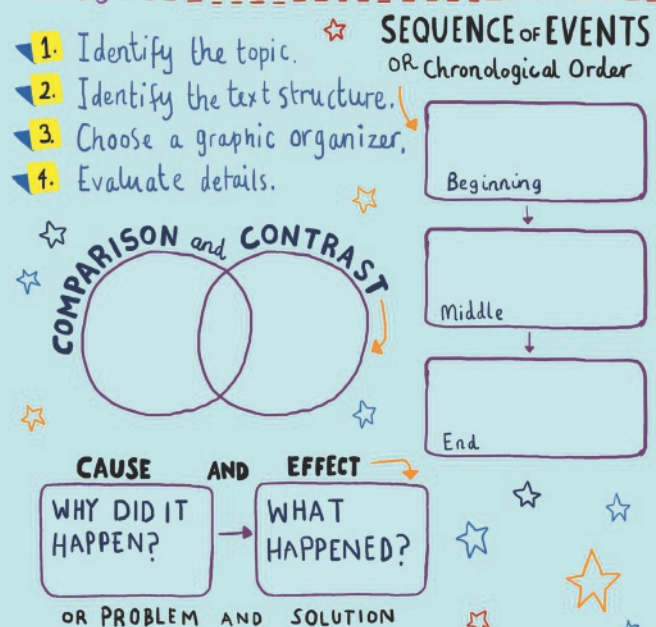 1. Identify the topic.
2. Identify the text structure.
3. Choose a graphic organizer.
4. Evaluate details.
SEQUENCE OF EVENTS
OR Chronological Order
Beginning
Middle
End
COMPARISON and CONTRAST
CAUSE AND EFFECT
WHY DID IT
HAPPEN?
WHAT
HAPPENED?
OR PROBLEM AND SOLUTION